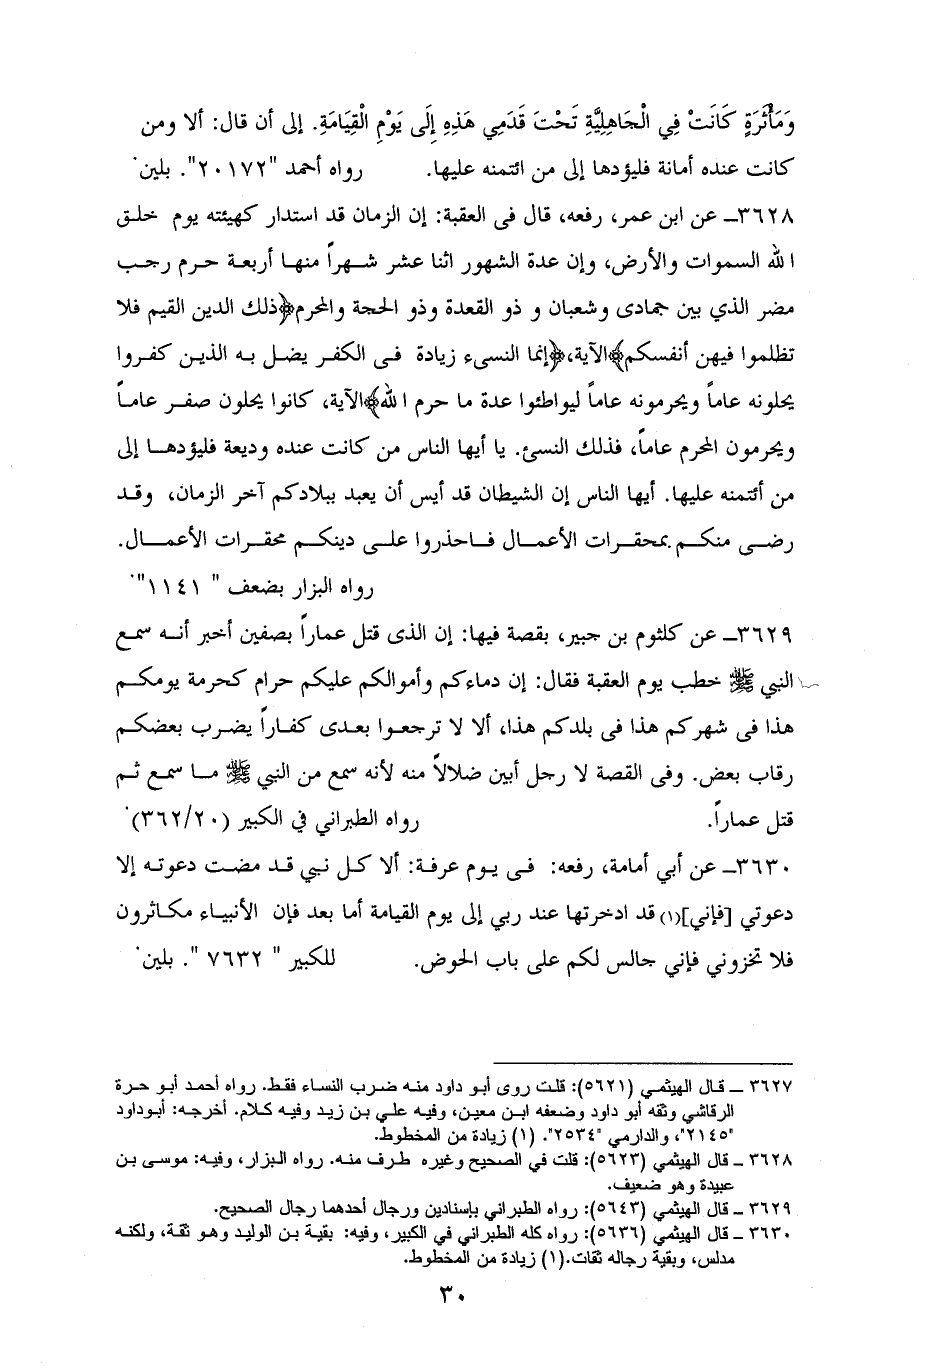 وَمَأْثَرَةٍ كَانَتْ فِي الْجَاهِلِيَّةِ تَحْتَ قَدَمِي هَذِهِ إِلَى يَوْمِ الْقِيَامَةِ. إلى أن قال: ألا ومن
كانت عنده أمانة فليؤدها إلى من ائتمنه عليها. رواه أحمد "٢٠١٧٢". بلين.
٣٦٢٨ــ عن ابن عمر، رفعه، قال فى العقبة: إن الزمان قد استدار كهيئته يوم خلق
الله السموات والأرض، وإن عدة الشهور اثنا عشر شهراً منها أربعة حرم رجب
مضر الذي بين جمادى وشعبان و ذو القعدة وذو الحجة والمحرم﴿ذلك الدين القيم فلا
تظلموا فيهن أنفسكم﴾الآية،﴿إنما النسىء زيادة فى الكفر يضل به الذين كفروا
يحلونه عاماً ويحرمونه عاماً ليواطئوا عدة ما حرم الله﴾الآية، كانوا يحلون صفر عاماً
ويحرمون المحرم عاماً، فذلك النسئ. يا أيها الناس من كانت عنده وديعة فليؤدها إلى
من أئتمنه عليها. أيها الناس إن الشيطان قد أيس أن يعبد ببلادكم آخر الزمان، وقد
رضى منكم بمحقرات الأعمال فاحذروا على دينكم محقرات الأعمال.
رواه البزار بضعف " ١١٤١".
٣٦٢٩ــ عن كلثوم بن جبير، بقصة فيها: إن الذى قتل عماراً بصفين أخبر أنه سمع
النبي ﷺ خطب يوم العقبة فقال: إن دماءكم وأموالكم عليكم حرام كحرمة يومكم
هذا فى شهركم هذا فى بلدكم هذا، ألا لا ترجعوا بعدى كفاراً يضرب بعضكم
رقاب بعض. وفى القصة لا رجل أبين ضلالاً منه لأنه سمع من النبي ﷺ ما سمع ثم
قتل عماراً. رواه الطبراني في الكبير (٣٦٢/٢٠).
٣٦٣٠ــ عن أبي أمامة، رفعه: فى يوم عرفة: ألا كل نبي قد مضت دعوته إلا
دعوتي [فإني](١) قد ادخرتها عند ربي إلى يوم القيامة أما بعد فإن الأنبياء مكاثرون
فلا تخزوني فإني جالس لكم على باب الحوض. للكبير " ٧٦٣٢ ". بلين.
٣٦٢٧ ــ قال الهيثمي (٥٦٢١): قلت روى أبو داود منه ضرب النساء فقط. رواه أحمد أبو حرة
الرقاشي وثقه أبو داود وضعفه ابن معين، وفيه علي بن زيد وفيه كلام. أخرجه: أبوداود
"٢١٤٥"، والدارمي "٢٥٣٤". (١) زيادة من المخطوط.
٣٦٢٨ ــ قال الهيثمي (٥٦٢٣): قلت في الصحيح وغيره طرف منه. رواه البزار، وفيه: موسى بن
عبيدة وهو ضعيف.
٣٦٢٩ ــ قال الهيثمي (٥٦٤٣): رواه الطبراني بإسنادين ورجال أحدهما رجال الصحيح.
٣٦٣٠ ــ قال الهيثمي (٥٦٣٦): رواه كله الطبراني في الكبير، وفيه: بقية بن الوليد وهو ثقة، ولكنه
مدلس، وبقية رجاله ثقات.(١) زيادة من المخطوط.
٣٠